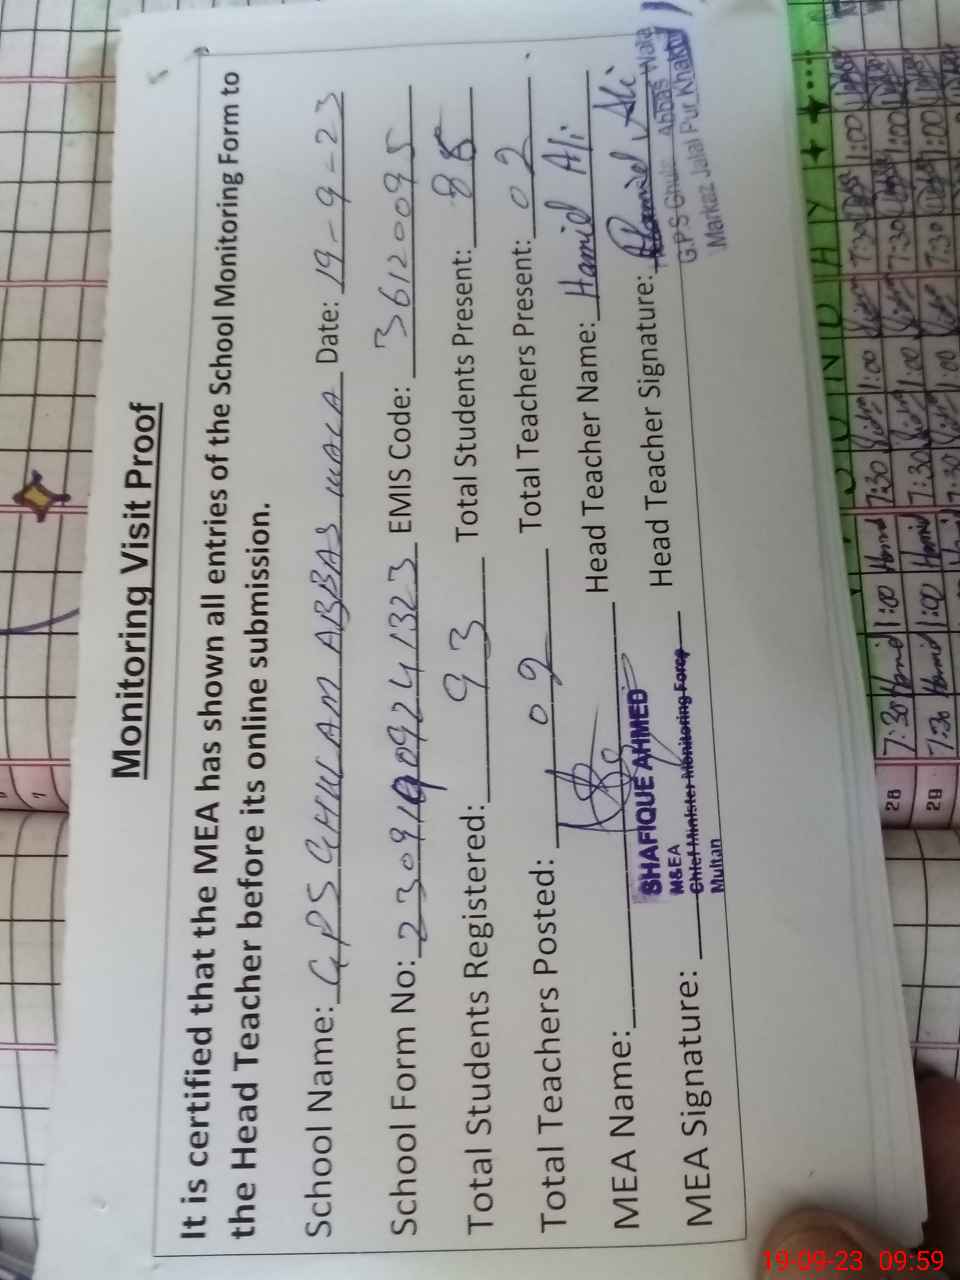 Monitoring Visit Proof
It is certified that the MEA has shown all entries of the School Monitoring Form to
the Head Teacher before its online submission.
School Name: GPS GHULAM ABBAS WALA Date: 19-9-23
School Form No: EMIS Code: 36120095
Total Students Registered: 93 Total Students Present: 88
Total Teachers Posted: 02 Total Teachers Present: 02
MEA Name: Head Teacher Name: Hamid Ali
SHAFIQUE AHMED
M&EA
Chief Minister Monitoring Force
Multan
MEA Signature: Head Teacher Signature: Hamid Ali
G.P.S Ghulam Abbas Wala
Markaz Jalal Pur Khakhi
28 7:30 Hamid 1:00 Hamid 7:30 1:00 7:30 1:00
29 7:30 Hamid 1:00 Hamid 7:30 1:00 7:30 1:00
7:30 1:00 7:30 1:00
19-09-23 09:59